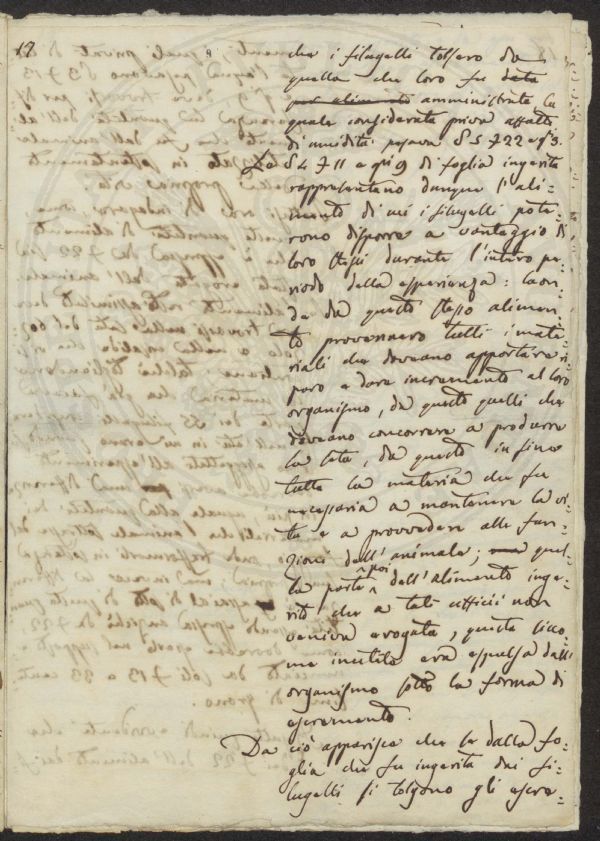 12
che i filugelli tolsero da
quella che loro fu data
per alimento amministrata la
quale considerata priva affatto
di umidità pesava
Le di foglia ingerita
rappresentano dunque l'ali=
mento di cui i filugelli pote=
rono disporre a vantaggio di
loro stessi durante l'intero pe=
riodo della esperienza: laon=
de da questo stesso alimen=
to provennero tutti i mate=
riali che doveano apportare ri=
paro e dare incremento al loro
organismo, da questo quelli che
doveano concorrere a produrre
la seta, da questo in fine
tutta la materia che fu
necessaria a mantenere la vi=
ta e a provvedere alle fun=
zioni dell'animale; quel=
la parte poi dell'alimento inge=
rito che a tali ufficii non
veniva erogata, questa sicco=
me inutile era espulsa dall'
organismo sotto la forma di
escremento.
Da ciò apparisce che se dalla fo=
glia che fu ingerita dai fi=
lugelli si tolgono gli escre=